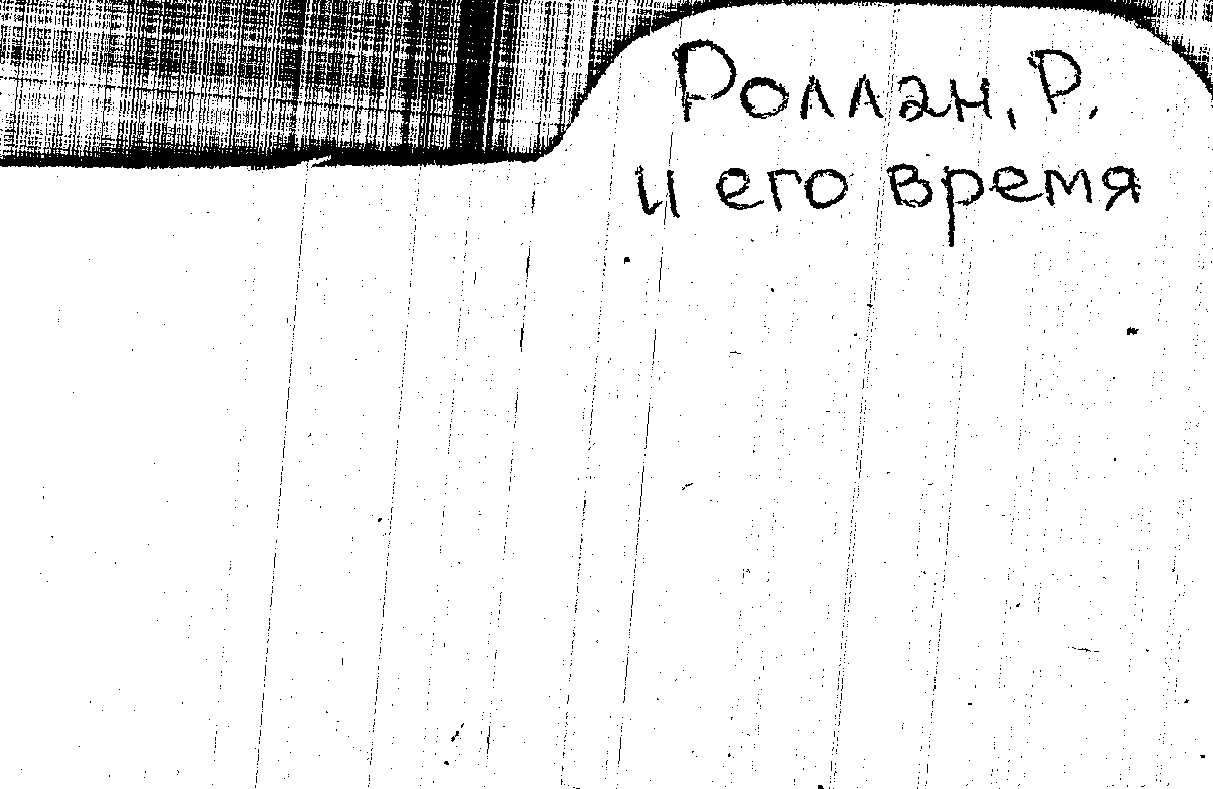 Роллан, Р.
и его время